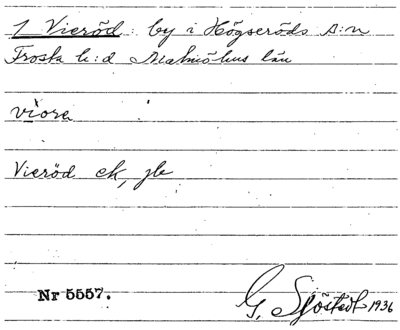 1 Vieröd: by i Högseröds s:n
Frosta h:d Malmöhus län
viǫre
Vieröd ek, jb
Nr 5557.
G. Sjöstedt 1936